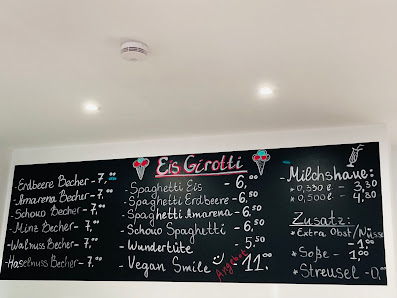 Eis Girotti
- Erdbeere Becher - 7,00
- Amarena Becher - 7,00
- Schoko Becher - 7,00
- Minz Becher - 7,00
- Walnuss Becher - 7,00
- Haselnuss Becher - 7,00
- Spaghetti Eis - 6,00
- Spaghetti Erdbeere - 6,50
- Spaghetti Amarena - 6,50
- Schoko Spaghetti - 6,50
- Wundertüte - 5,50
- Vegan Smile - 11,00
Angebot
- Milchshake:
* 0,330 l - 3,30
* 0,500 l - 4,80
Zusatz:
* Extra Obst/Nüsse
- 1,00
* Soße - 1,00
* Streusel - 0,